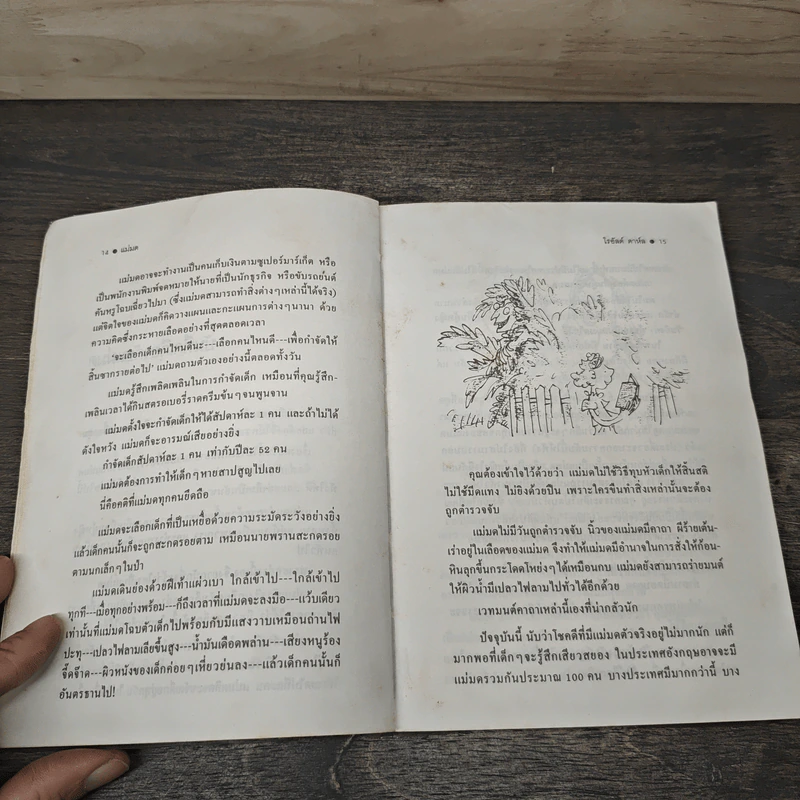 14 ● แม่มด
แม่มดอาจจะทำงานเป็นคนเก็บเงินตามซูเปอร์มาร์เก็ต หรือ
เป็นพนักงานพิมพ์จดหมายให้นายที่เป็นนักธุรกิจ หรือขับรถยนต์
คันหรูโฉบเฉี่ยวไปมา (ซึ่งแม่มดสามารถทำสิ่งต่างๆเหล่านี้ได้จริง)
แต่จิตใจของแม่มดก็คิดวางแผนและกะแผนการต่างๆนานา ด้วย
ความคิดซึ่งกระหายเลือดอย่างที่สุดตลอดเวลา
'จะเลือกเด็กคนไหนดีนะ---เลือกคนไหนดี---เพื่อกำจัดให้
สิ้นซากรายต่อไป' แม่มดถามตัวเองอย่างนี้ตลอดทั้งวัน
แม่มดรู้สึกเพลิดเพลินในการกำจัดเด็ก เหมือนที่คุณรู้สึก-
เพลินเวลาได้กินสตรอเบอรี่ราดครีมข้นๆจนพูนจาน
แม่มดตั้งใจจะกำจัดเด็กให้ได้สัปดาห์ละ 1 คน และถ้าไม่ได้
ดังใจหวัง แม่มดก็จะอารมณ์เสียอย่างยิ่ง
กำจัดเด็กสัปดาห์ละ 1 คน เท่ากับปีละ 52 คน
แม่มดต้องการทำให้เด็กๆหายสาปสูญไปเลย
นี่คือคติที่แม่มดทุกคนยึดถือ
แม่มดจะเลือกเด็กที่เป็นเหยื่อด้วยความระมัดระวังอย่างยิ่ง
แล้วเด็กคนนั้นก็จะถูกสะกดรอยตาม เหมือนนายพรานสะกดรอย
ตามนกเล็กๆในป่า
แม่มดเดินย่องด้วยฝีเท้าแผ่วเบา ใกล้เข้าไป---ใกล้เข้าไป
ทุกที---เมื่อทุกอย่างพร้อม---ก็ถึงเวลาที่แม่มดจะลงมือ---แว้บเดียว
เท่านั้นที่แม่มดโฉบตัวเด็กไปพร้อมกับมีแสงวาบเหมือนถ่านไฟ
ปะทุ---เปลวไฟลามเลียขึ้นสูง---น้ำมันเดือดพล่าน---เสียงหนูร้อง
จี๊ดจ๊าด---ผิวหนังของเด็กค่อยๆเหี่ยวย่นลง---แล้วเด็กคนนั้นก็
อันตรธานไป!
โรอัลด์ ดาห์ล ● 15
คุณต้องเข้าใจไว้ด้วยว่า แม่มดไม่ใช้วิธีทุบหัวเด็กให้สิ้นสติ
ไม่ใช้มีดแทง ไม่ยิงด้วยปืน เพราะใครขืนทำสิ่งเหล่านั้นจะต้อง
ถูกตำรวจจับ
แม่มดไม่มีวันถูกตำรวจจับ นิ้วของแม่มดมีคาถา ผีร้ายเต้น-
เร่าอยู่ในเลือดของแม่มด จึงทำให้แม่มดมีอำนาจในการสั่งให้ก้อน-
หินลุกขึ้นกระโดดโหย่งๆได้เหมือนกบ แม่มดยังสามารถร่ายมนต์
ให้ผิวน้ำมีเปลวไฟลามไปทั่วได้อีกด้วย
เวทมนต์คาถาเหล่านี้เองที่น่ากลัวนัก
ปัจจุบันนี้ นับว่าโชคดีที่มีแม่มดตัวจริงอยู่ไม่มากนัก แต่ก็
มากพอที่เด็กๆจะรู้สึกเสียวสยอง ในประเทศอังกฤษอาจจะมี
แม่มดรวมกันประมาณ 100 คน บางประเทศมีมากกว่านี้ บาง